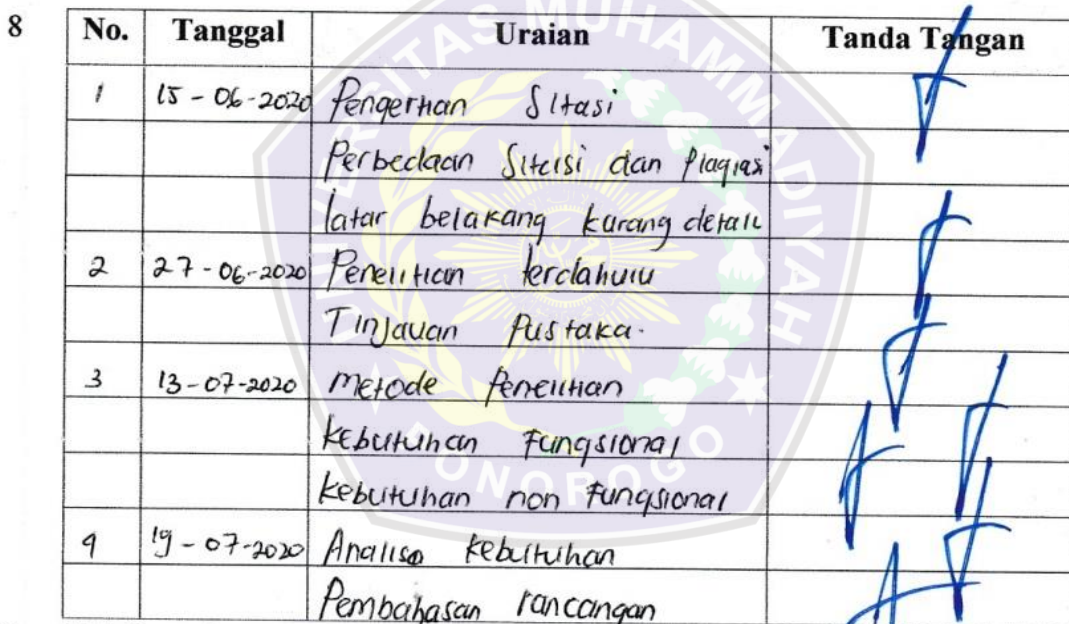 8
No. Tanggal Uraian Tanda Tangan
1 15-06-2020 Pengertian Sitasi
Perbedaan Sitasi dan Plagiasi
latar belakang kurang detail
2 27-06-2020 Penelitian terdahulu
Tinjauan Pustaka.
3 13-07-2020 Metode Penelitian
Kebutuhan Fungsional
Kebutuhan non Fungsional
4 19-07-2020 Analisa Kebutuhan
Pembahasan rancangan
UNIVERSITAS MUHAMMADIYAH
PONOROGO